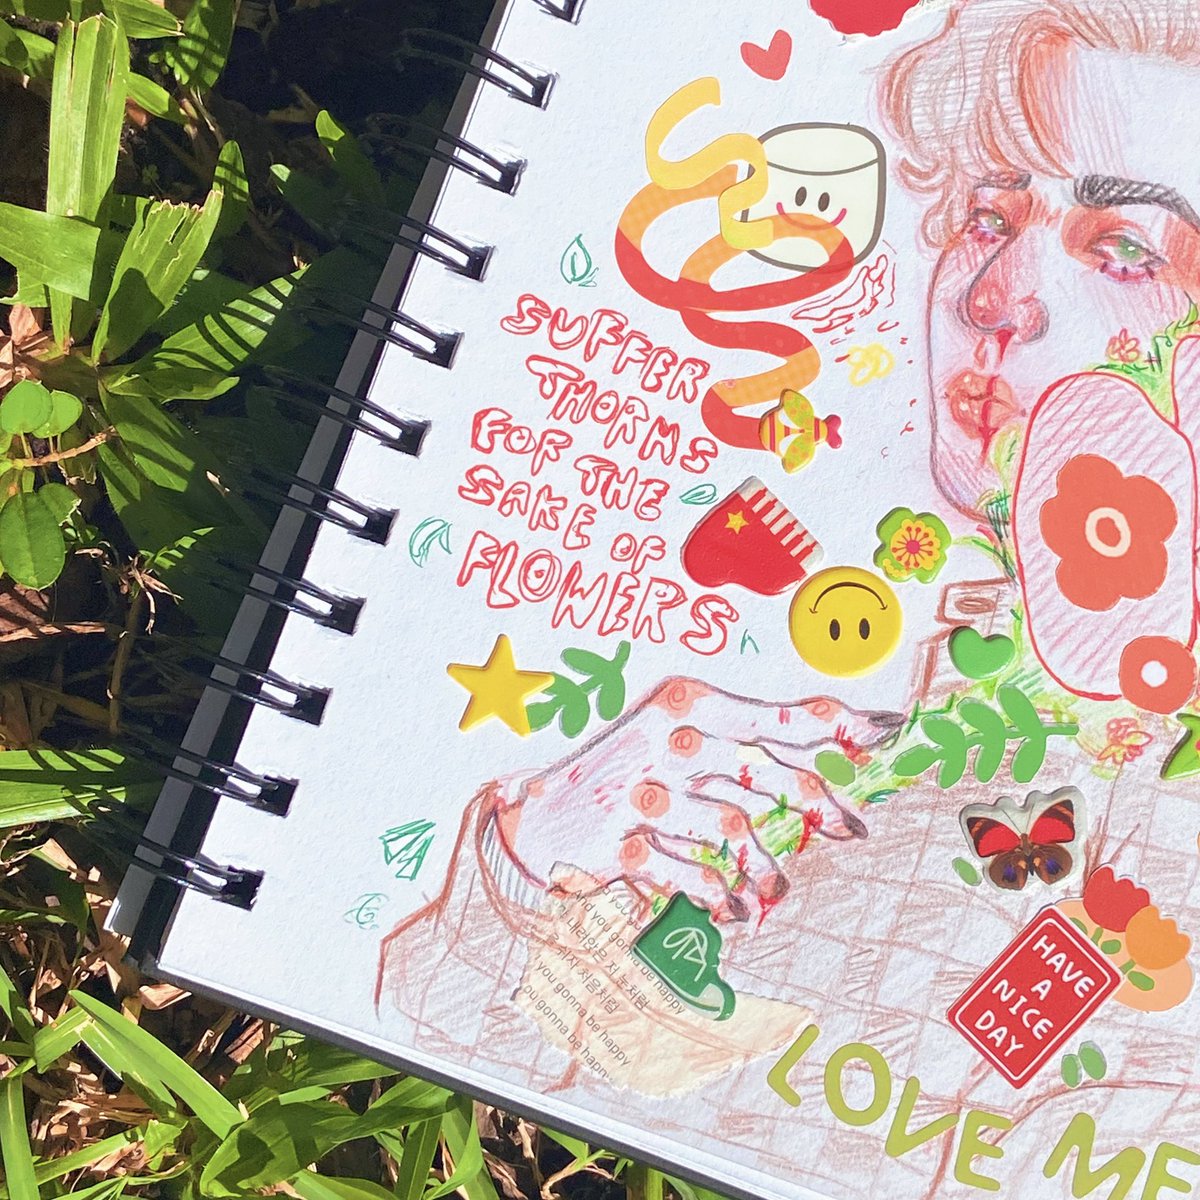 SUFFER
THORNS
FOR THE
SAKE OF
FLOWERS
And you gonna be happy
내려앉은 저 눈처럼
처음처럼
you gonna be happy
ou gonna be happ
HAVE
A
NICE
DAY
LOVE ME